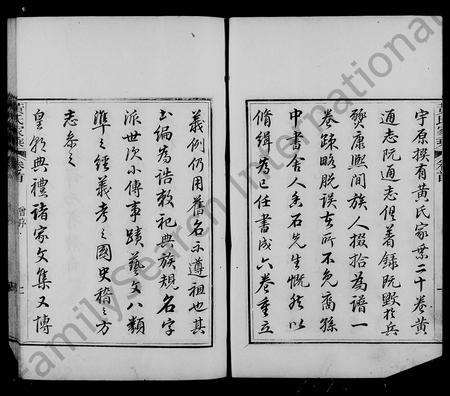 宇原撰有黄氏家業二十卷黄
通志阮通志俱著録阮燬於兵
燹康熙間族人掇拾為譜一
卷疎略脱誤在所不免裔孫
中書舍人香石先生慨然以
脩緝為己任書成六卷重立
義例仍用舊名示遵祖也其
出編為誥敕祀典族規名字
派世次小傳事蹟藝文八類
準之經義考之國史稽之方
志參之
皇朝典禮諸家文集又博
黄氏家乘 卷首
FamilySearch International